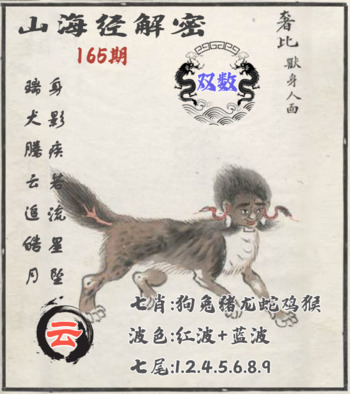 山海经解密
165期
奢比 兽身人面
双数
瑞犬腾云追皓月
身影疾若流星坠
云
七肖:狗兔猪龙蛇鸡猴
波色:红波+蓝波
七尾:1.2.4.5.6.8.9